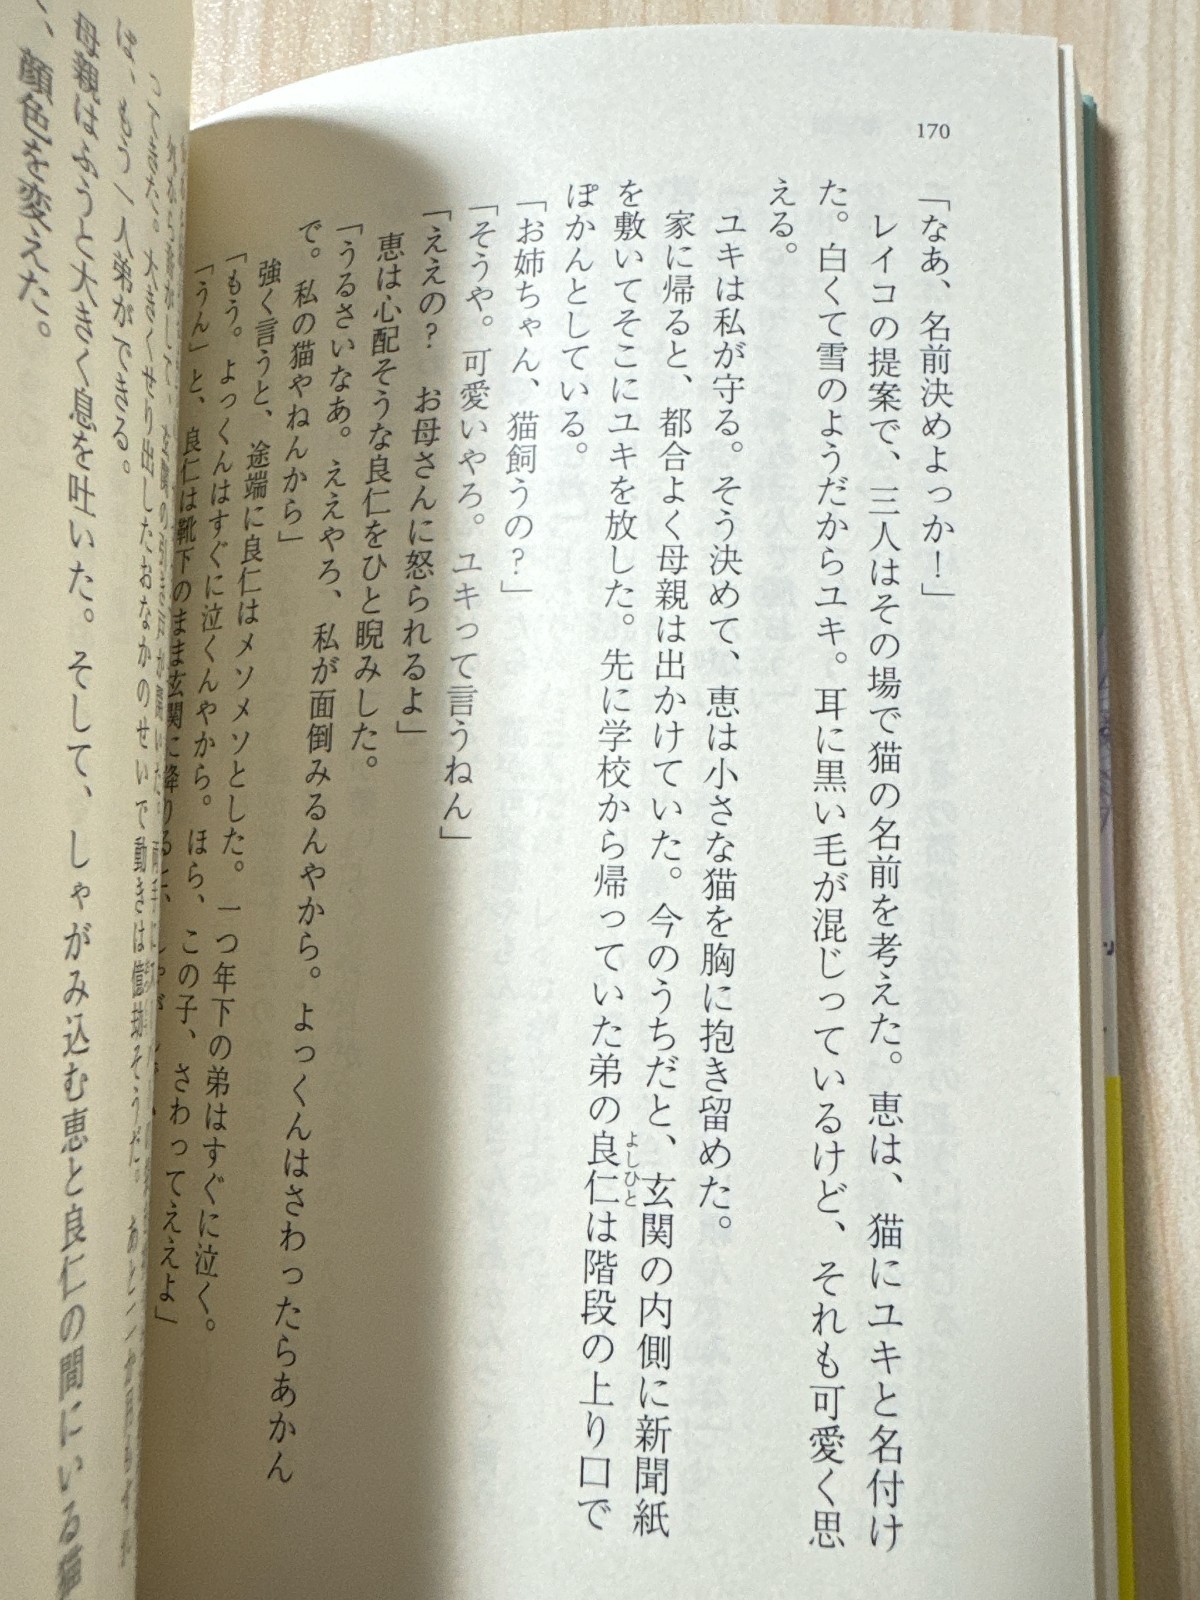 170
「なあ、名前決めよっか！」
レイコの提案で、三人はその場で猫の名前を考えた。恵は、猫にユキと名付け
た。白くて雪のようだからユキ。耳に黒い毛が混じっているけど、それも可愛く思
える。
ユキは私が守る。そう決めて、恵は小さな猫を胸に抱き留めた。
家に帰ると、都合よく母親は出かけていた。今のうちだと、玄関の内側に新聞紙
を敷いてそこにユキを放した。先に学校から帰っていた弟の良仁は階段の上り口で
よしひと
ぽかんとしている。
「お姉ちゃん、猫飼うの？」
「そうや。可愛いやろ。ユキって言うねん」
「ええの？　お母さんに怒られるよ」
恵は心配そうな良仁をひと睨みした。
「うるさいなあ。ええやろ、私が面倒みるんやから。よっくんはさわったらあかん
で。私の猫やねんから」
強く言うと、途端に良仁はメソメソとした。一つ年下の弟はすぐに泣く。
「もう。よっくんはすぐに泣くんやから。ほら、この子、さわってええよ」
「うん」と、良仁は靴下のまま玄関に降りると、
ってきた。大きくせり出したおなかのせいで動きは億劫そうだ。あと
ば、もう一人弟ができる。
母親はふうと大きく息を吐いた。そして、しゃがみ込む恵と良仁の間にいる猫
、顔色を変えた。